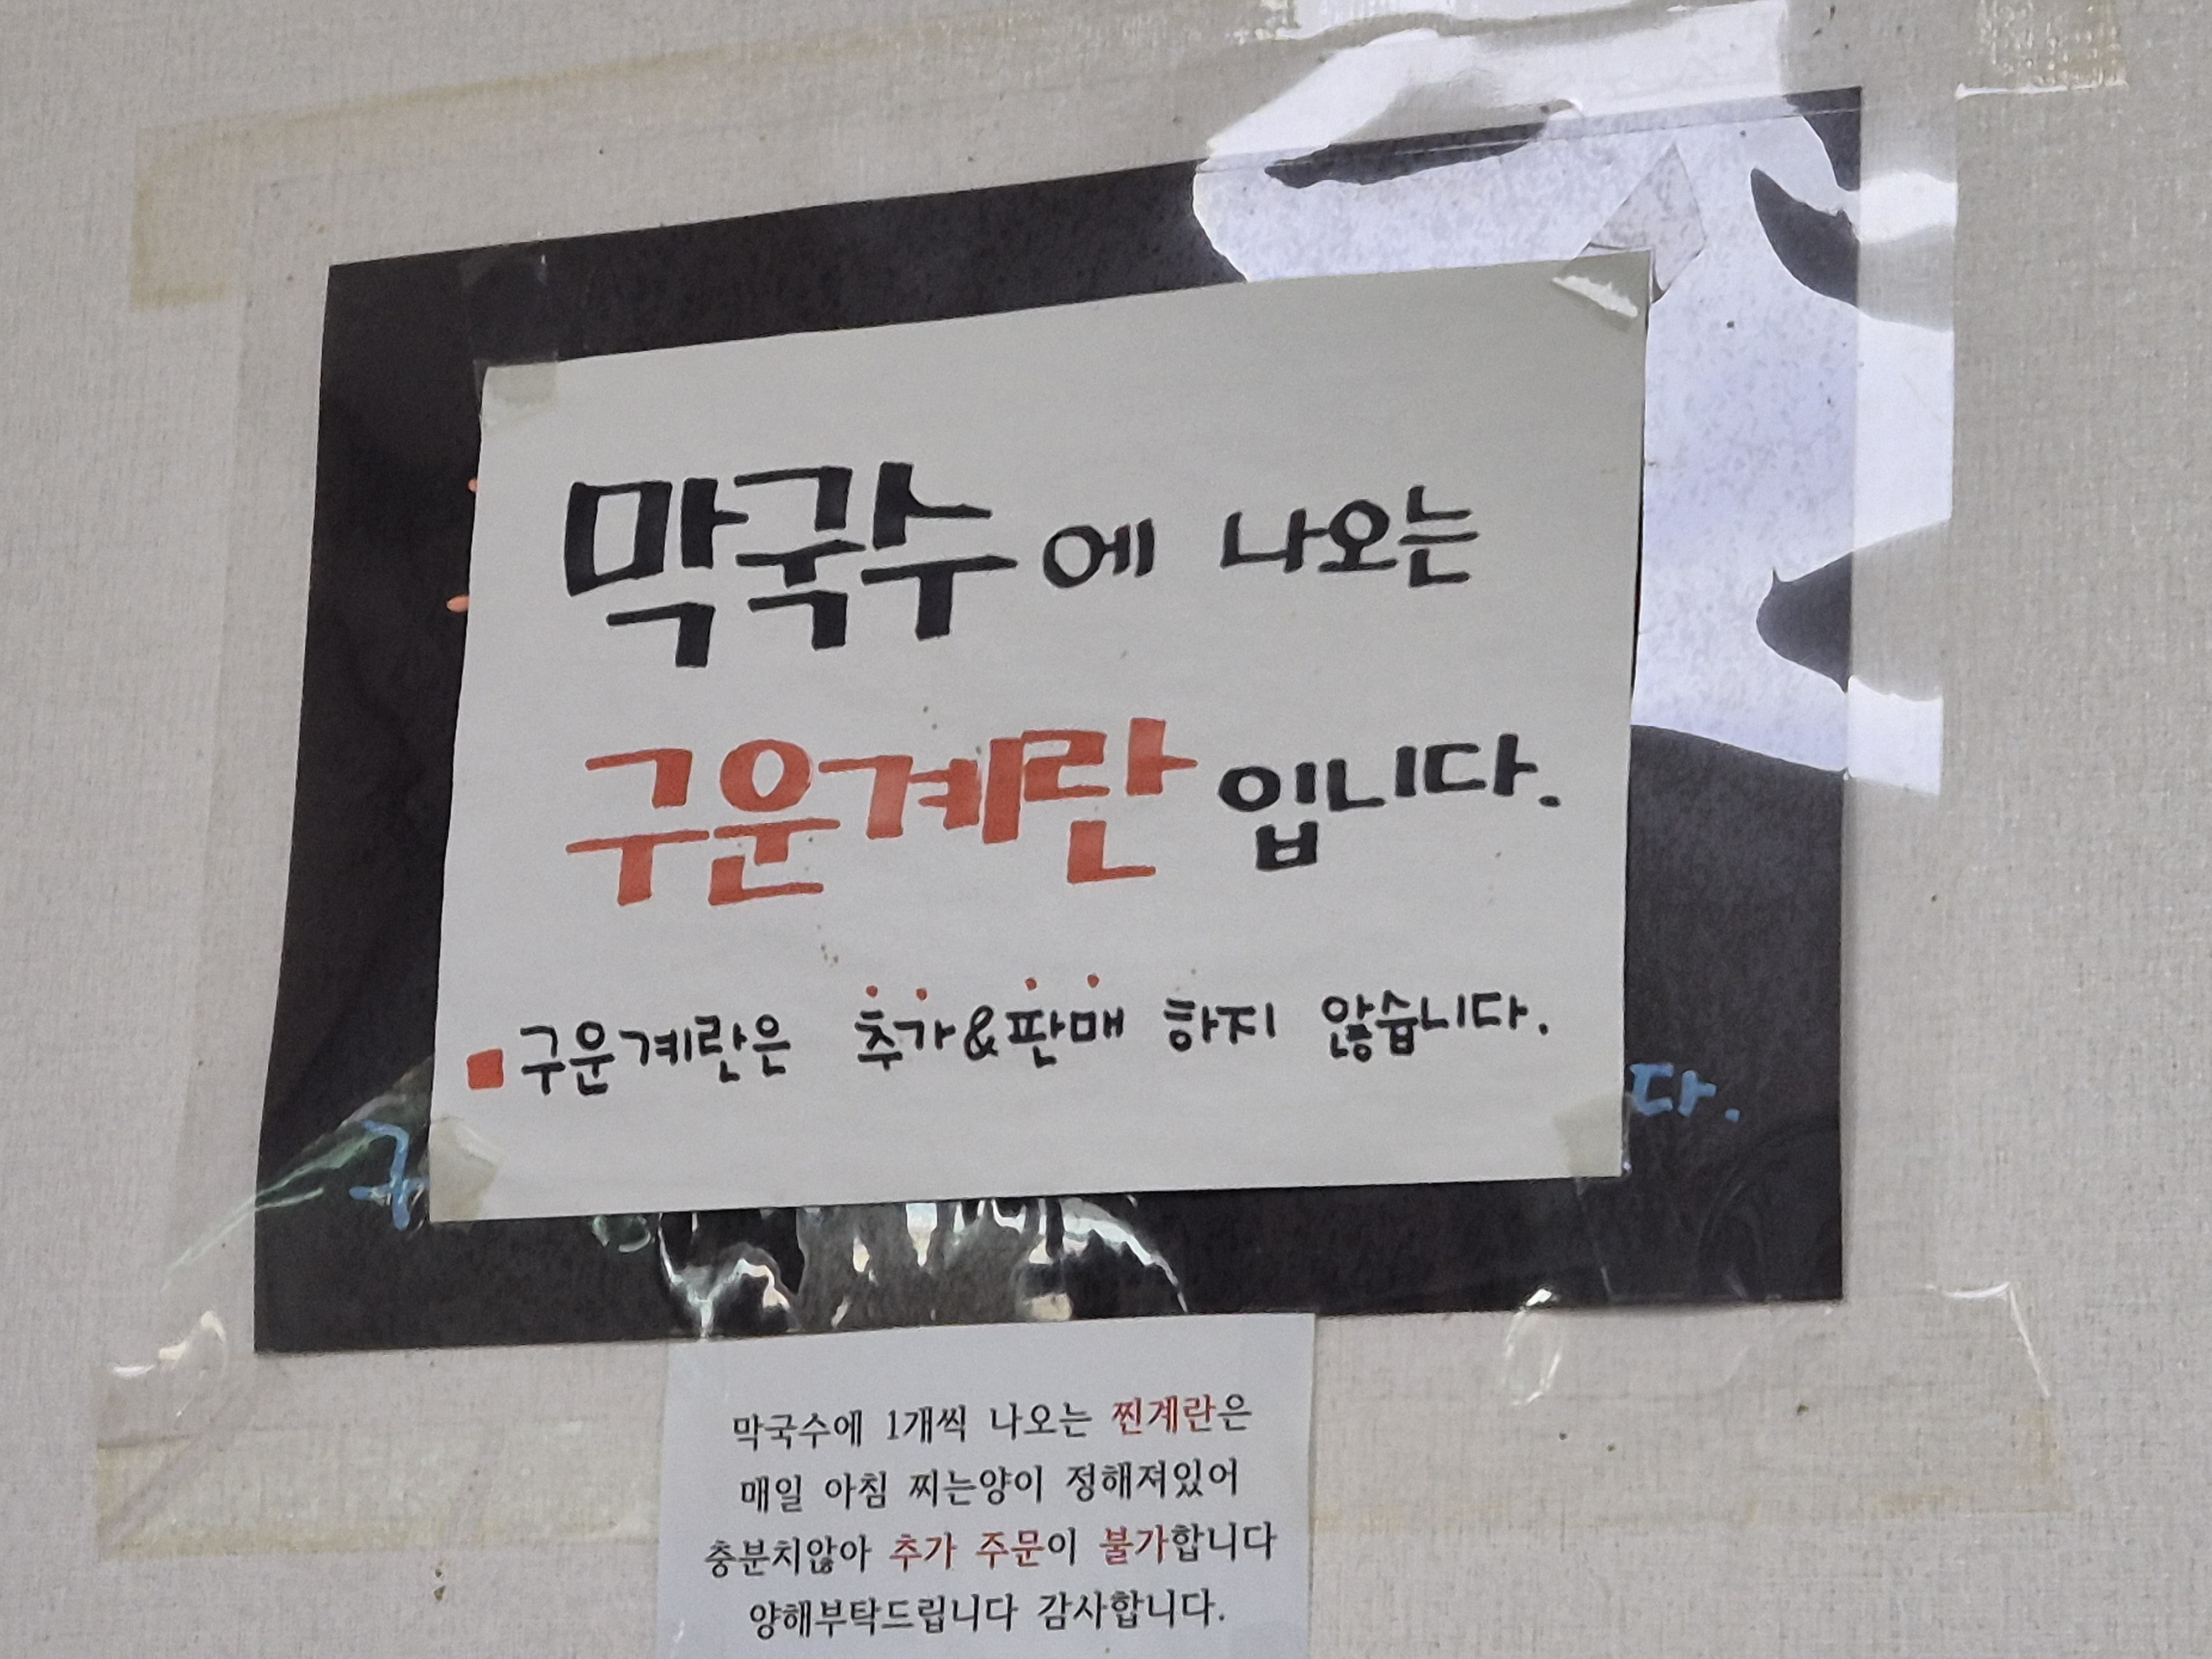 막국수에 나오는
구운계란입니다.
■ 구운계란은 추가&판매 하지 않습니다.
다.
막국수에 1개씩 나오는 찐계란은
매일 아침 찌는양이 정해져있어
충분치않아 추가 주문이 불가합니다
양해부탁드립니다 감사합니다.